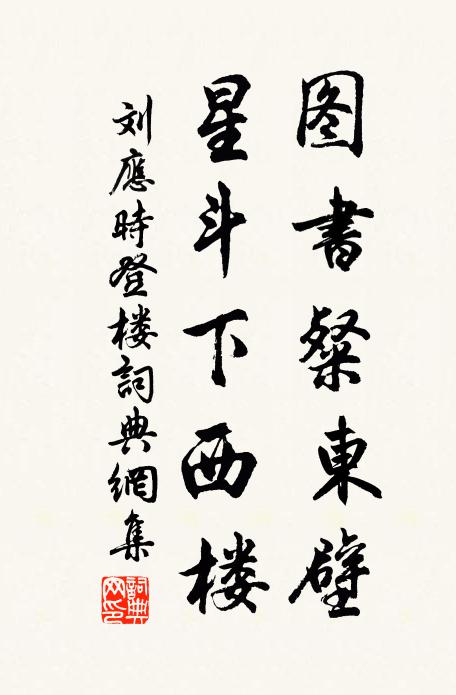 图書粲東壁
星斗下西楼
刘應時登楼詞典網集
詞典网印